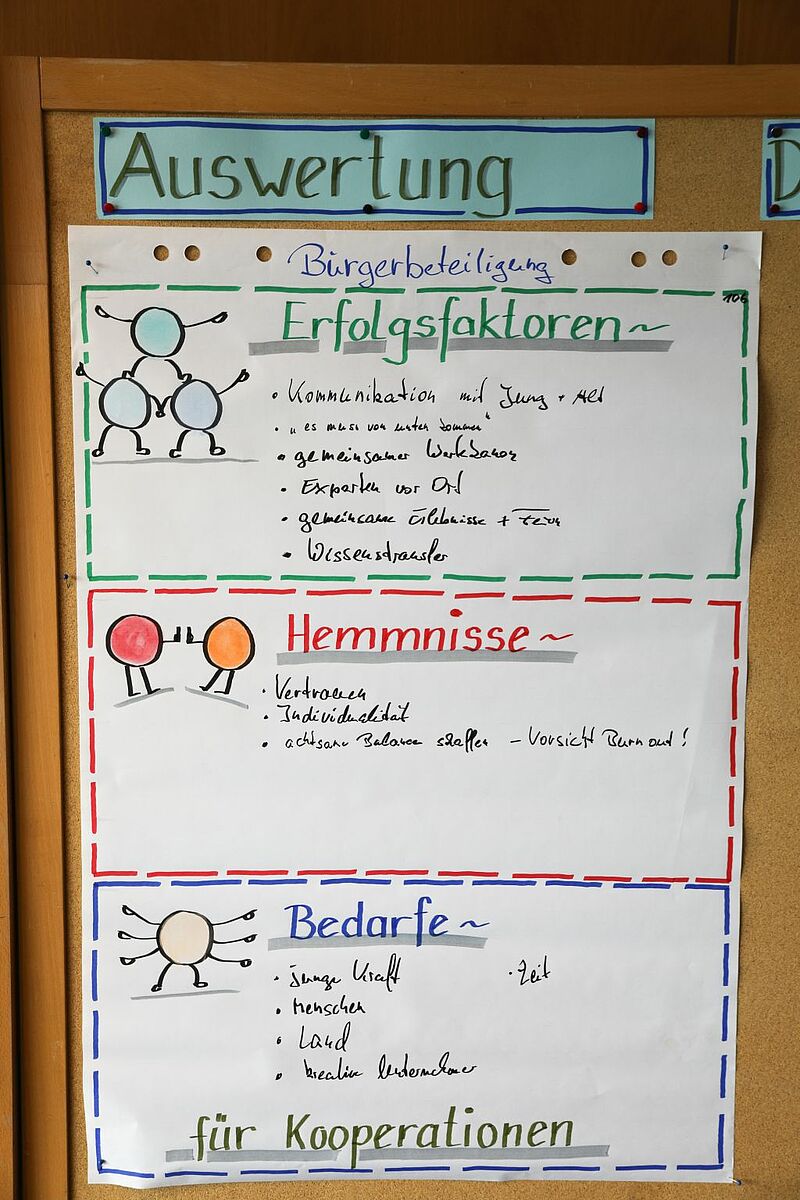 Auswertung
D
Bürgerbeteiligung
106
Erfolgsfaktoren~
• Kommunikation mit Jung + Alt
• "es muss von unten kommen"
• gemeinsamer
• Experten vor Ort
• gemeinsame Erlebnisse +
• Wissenstransfer
Hemmnisse~
• Vertrauen
• Individualität
• achtsame Balance schaffen – Vorsicht Burn out!
Bedarfe~
• junge Kraft • Zeit
• Menschen
• Land
• kreative Unternehmer
für Kooperationen